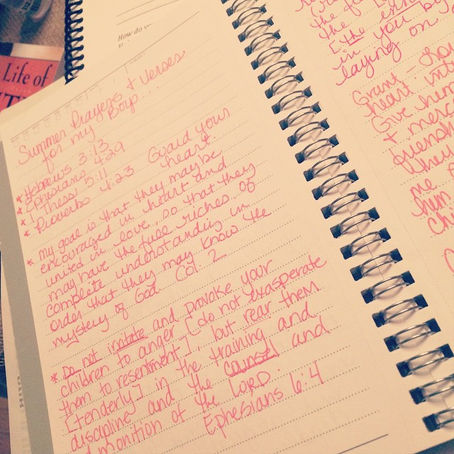 Life of
How do
Summer Prayers & Verses
for my Boys
* Hebrews 3:13
* Ephesians 4:29
* 1 Thess 5:11
* Proverbs 4:23 Guard your
heart.
* My goal is that they may be
encouraged in heart and
united in love, so that they
may have the full riches of
complete understanding in
order that they may know the
mystery of God Col. 2
* Do not irritate and provoke your
children to anger [do not exasperate
them to resentment], but rear them
[tenderly] in the training and
discipline and the counsel and
admonition of the LORD.
Ephesians 6:4
the
in you by
laying on
Grant
heart
Give him
& merc
me